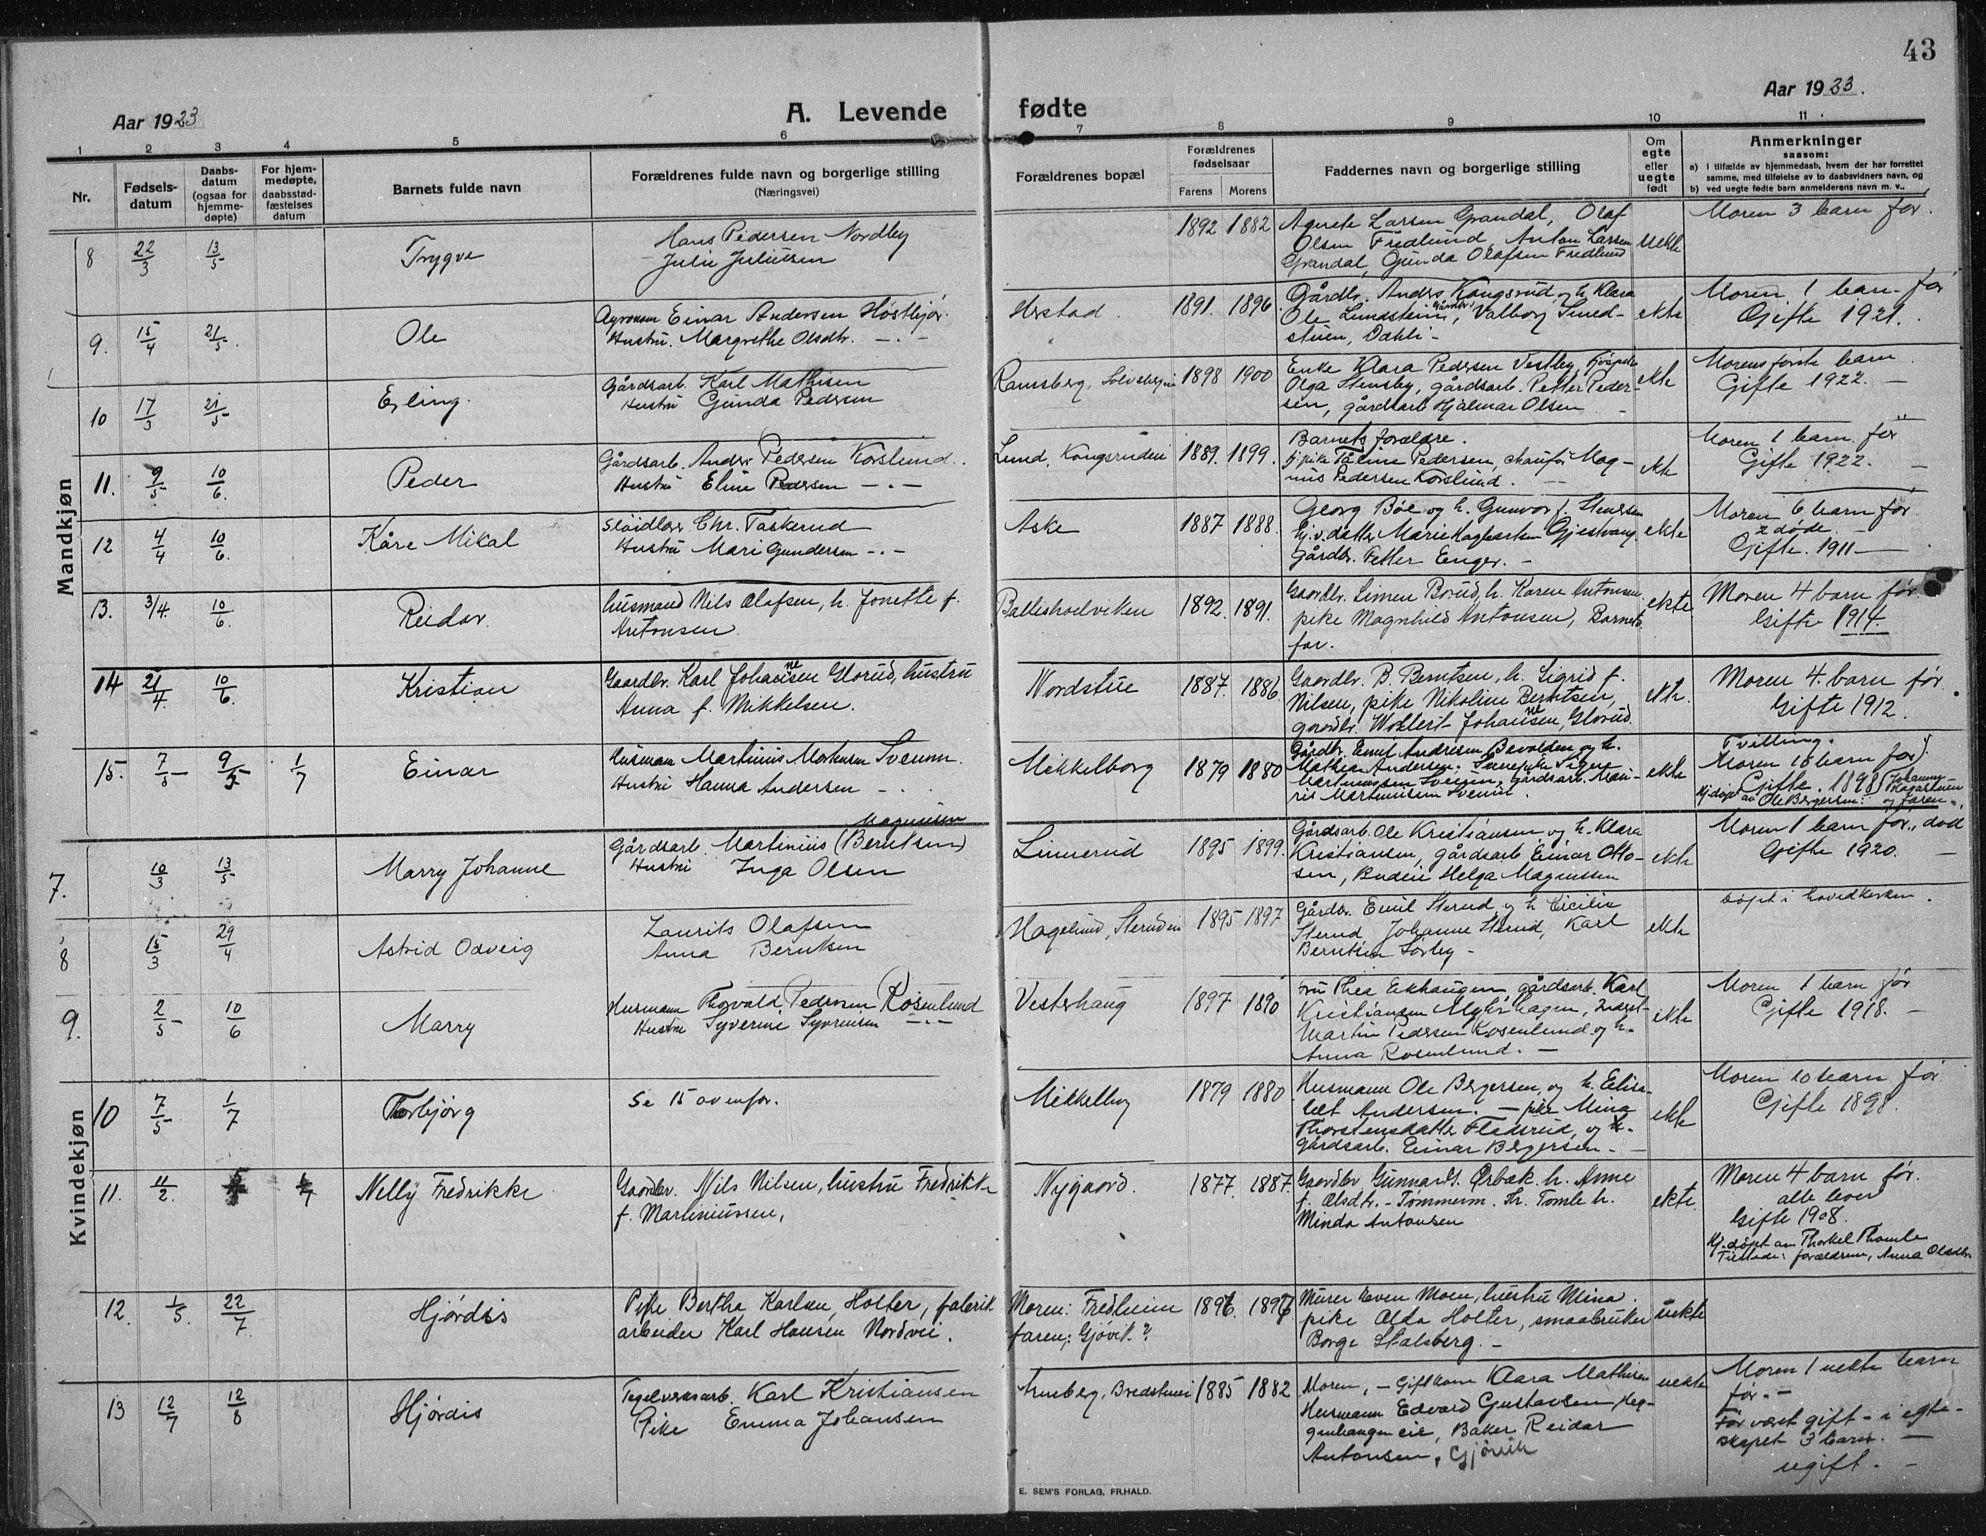 43
Aar 1923
A. Levende fødte
Aar 1923.
1 2 3 4 5 6 7 8 9 10 11
Nr.
Fødsels-
datum
Daabs-
datum
(ogsaa for
hjemme-
døpte)
For hjem-
medøpte,
daabsstad-
fæstelses
datum
Barnets fulde navn
Forældrenes fulde navn og borgerlige stilling
(Næringsvei)
Forældrenes bopæl
Forældrenes
fødselsaar
Farens Morens
Faddernes navn og borgerlige stilling
Om
egte
eller
uegte
født
Anmerkninger
saasom:
a) i tilfælde av hjemmedaab, hvem der har forrettet
samme, med tilføielse av to daabsvidners navn, og
b) ved uegte fødte barn anmelderens navn m. v.
Mandkjøn
8 22/3 13/5 Trygve
Hans Pedersen Nordby
Julie Juliussen
1892 1882
Agnete Larsen Grandal, Olaf
Olsen Fredlund, Anton Larsen
Grandal, Gunda Olafsen Fredlund
uekte
Moren 3 barn før.
9. 15/4 21/5 Ole
Agronom Einar Andersen Høstbjør.
Hustru. Margrethe Olsdtr. - . -
Herstad. 1891. 1896
Gårdbr. Anders Kongsrud og h. Klara
Ole Lundstein, Valborg Smed-
stuen, Dahli -
ekte
Moren 1 barn før
Gifte 1921.
10 17/3 21/5 Erling.
Gårdsarb. Karl Mathisen
Hustru Gunda Pedersen
Ramsberg, Solvebergei 1898 1900
Enke Klara Pedersen Vestby,
Olga Stensby, gårdsarb. Petter Peder-
sen, gårdsarb Hjalmar Olsen
ekte
Morens første barn
Gifte 1922. -
11. 9/5 10/6 Peder
Gårdsarb. Anders Pedersen Korslund.
Hustru Eline Pedersen - . -
Lund, Kongsrudeie 1889. 1899.
Barnets forældre.
pike Pedersen, chaufør Mag-
nus Pedersen Korslund.
ekte
Moren 1 barn før
Gifte 1922. -
12 4/4 10/6 Kåre Mikal
Sløidlær. Chr. Taskerud
Hustru Mari Gundersen - . -
Aske 1887 1888.
Georg Bøe og h. Gunvor f. Stensen
Gj.v. datter Marie Gjestvang
Gårdbr. Petter Enger. -
ekte
Moren 6 barn før
2 døde -
Gifte. 1911 -
13. 3/4. 10/6 Reidar.
husmand Nils Olafsen, h. Jonette f.
Antonsen.
Ballishoelviken 1892. 1891.
Gaardbr. Simen Borud, h. Karen Antonsen
pike Magnhild Antonsen, Barnets
far.
ekte
Moren 4 barn før.
Gifte 1914.
14 21/4. 10/6. Kristian
Gaardbr. Karl Johannesen Glorud, hustru
Anna f. Mikkelsen.
Nordstue 1887. 1886
Gaardbr. B. Berntsen, h. Sigrid f.
Nilsen, pike Nikoline Berntsen,
gaardbr. Wollert Johannesen, Glorud.
ekte.
Moren 4. barn før
Gifte 1912.
15. 7/5 9/5 1/7 Einar
Husmann Martinius Mortensen Svenum.
Hustru Hanna Andersen - .
Mikkelborg 1879 1880
Gårdbr. Emil Andersen Bevolden og h.
Mathea Andersen. pike Signe
Martinussen Svenum. gårdsarb. Mau-
ris Martinusen Svenum.
ekte
Tvilling.
Moren 10 barn før
Gifte. 1898
Hj.døpt av Ole Bergersen: og faren.
Kvindekjøn
7. 10/3 13/5 Marry Johanne
Magnusen
Gårdsarb. Martinius (Berntsen)
Hustru Inga Olsen
Linnerud 1895 1899.
Gårdsarb. Ole Kristiansen og h. Klara
Kristiansen, gårdsarb Einar Otto-
sen, Budeie Helga Magnussen
ekte
Moren 1 barn før., død
Gifte 1920. -
8 15/3 29/4 Astrid Odveig
Laurits Olafsen
Anna Berntsen
Hagelund, Sterudei 1895 1897
Gårdbr. Emil Sterud og h. Cicilie
Sterud Johanne Sterud, Karl
Berntsen Sørby -
ekte
Døpt i hovedkirken.
9. 2/5 10/6 Marry
Husmann Thorvald Pedersen Rosenlund
Hustru Syverine Syversen - . -
Vesterhaug 1897 1890
Fru Thea Ekhaugen gårdsarb. Karl
Kristiansen Myhrhagen,
Martin Pedersen Rosenlund og h.
Anna Rosenlund. -
ekte
Moren 1 barn før
Gifte 1918. -
10 7/5 1/7 Thorbjørg
Se 15 ovenfor.
Mikkelborg 1879 1880
Husmann Ole Bergersen og h. Elisa-
bet Andersen. - pike Mina
Thorstensdatter Fladsrud, og
gårdsarb. Einar Bergersen -
ekte
Moren 10 barn før
Gifte 1898.
11. 11/2. Nelly Fredrikke
Gaardbr. Nils Nilsen, hustru Fredrikke
f. Martiniussen,
Nygaard. 1877. 1887.
Gaardbr Gunnardt. Ørbæk h. Anne
f. Olsdtr. - Tømmerm. Kr. Tomle h.
Minda Antonsen
ekte.
Moren 4 barn før.
alle lever
Gifte 1908.
Hj.døpt av Thorkel Thomle
Tilstede: forældrene, Anna Olsdtr.
12. 1/5. 22/7. Hjørdis
Pike Bertha Karlsen, Holter, fabrik
arbeider Karl Hansen Nordvei.
Moren: Fredheim
faren; Gjøvik.? 1896. 1897
Murer Even Moen, hustru Mina.
pike Alda Holter, smaabruker
Borge Stalsberg. -
uekte
13 12/7 12/8 Hjørdis
Tegelverksarb. Karl Kristiansen
Pike Emma Johansen
Arneberg, Bredstuei 1885 1882
Moren, - Giftkone Klara Mathisen
Husmann Edvard Gustavsen, Hag-
enhaugen eie, Baker Reidar
Antonsen, Gjøvik
uekte
Moren 1 uekte barn
før. -
Før været gift - i egte-
skapet 3 barn. -
ugift. -
E. SEM'S FORLAG, FR.HALD.